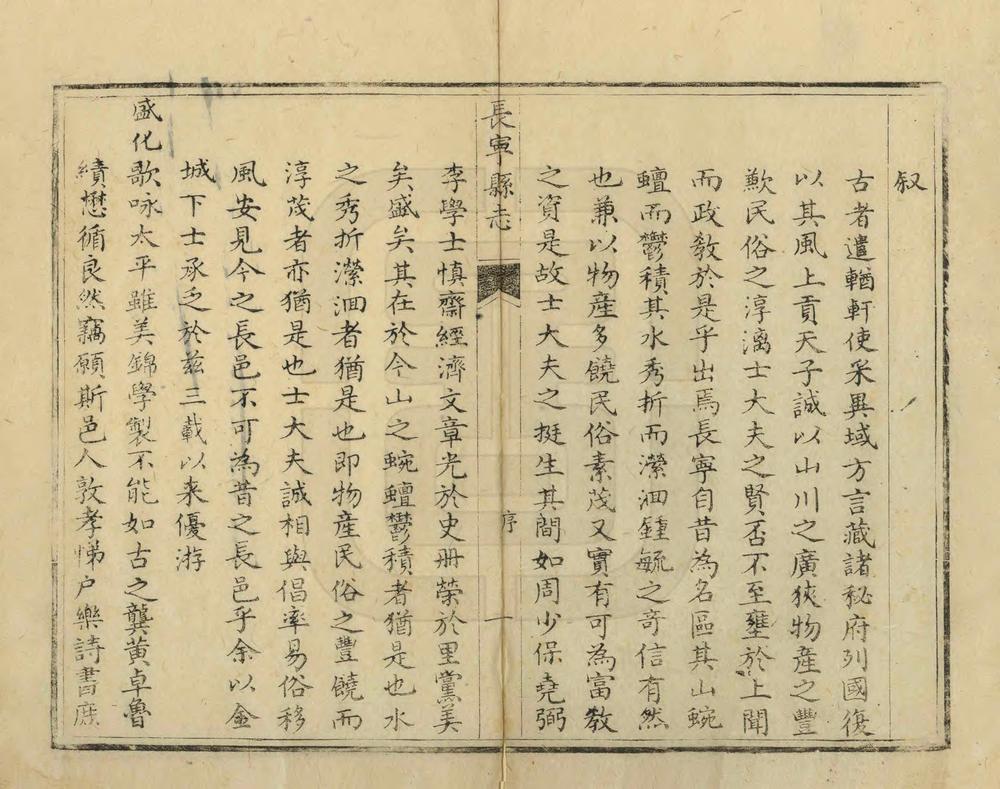 叙
古者遣輶軒使采異域方言藏諸秘府列國復
以其風上貢天子誠以山川之廣狹物產之豐
歉民俗之淳漓士大夫之賢否不至壅於上聞
而政敎於是乎出焉長寧自昔為名區其山蜿
蟺而鬱積其水秀折而瀠洄鍾毓之奇信有然
也兼以物產多饒民俗素茂又實有可為富敎
之資是故士大夫之挺生其間如周少保堯弼
長寧縣志
序
一
李學士慎齋經濟文章光於史册榮於里黨美
矣盛矣其在於今山之蜿蟺鬱積者猶是也水
之秀折瀠洄者猶是也即物產民俗之豐饒而
淳茂者亦猶是也士大夫誠相與倡率易俗移
風安見今之長邑不可為昔之長邑乎余以金
城下士承乏於兹三載以来優游
盛化歌咏太平雖美錦學製不能如古之龔黄卓魯
績懋循良然竊願斯邑人敦孝悌户樂詩書庶